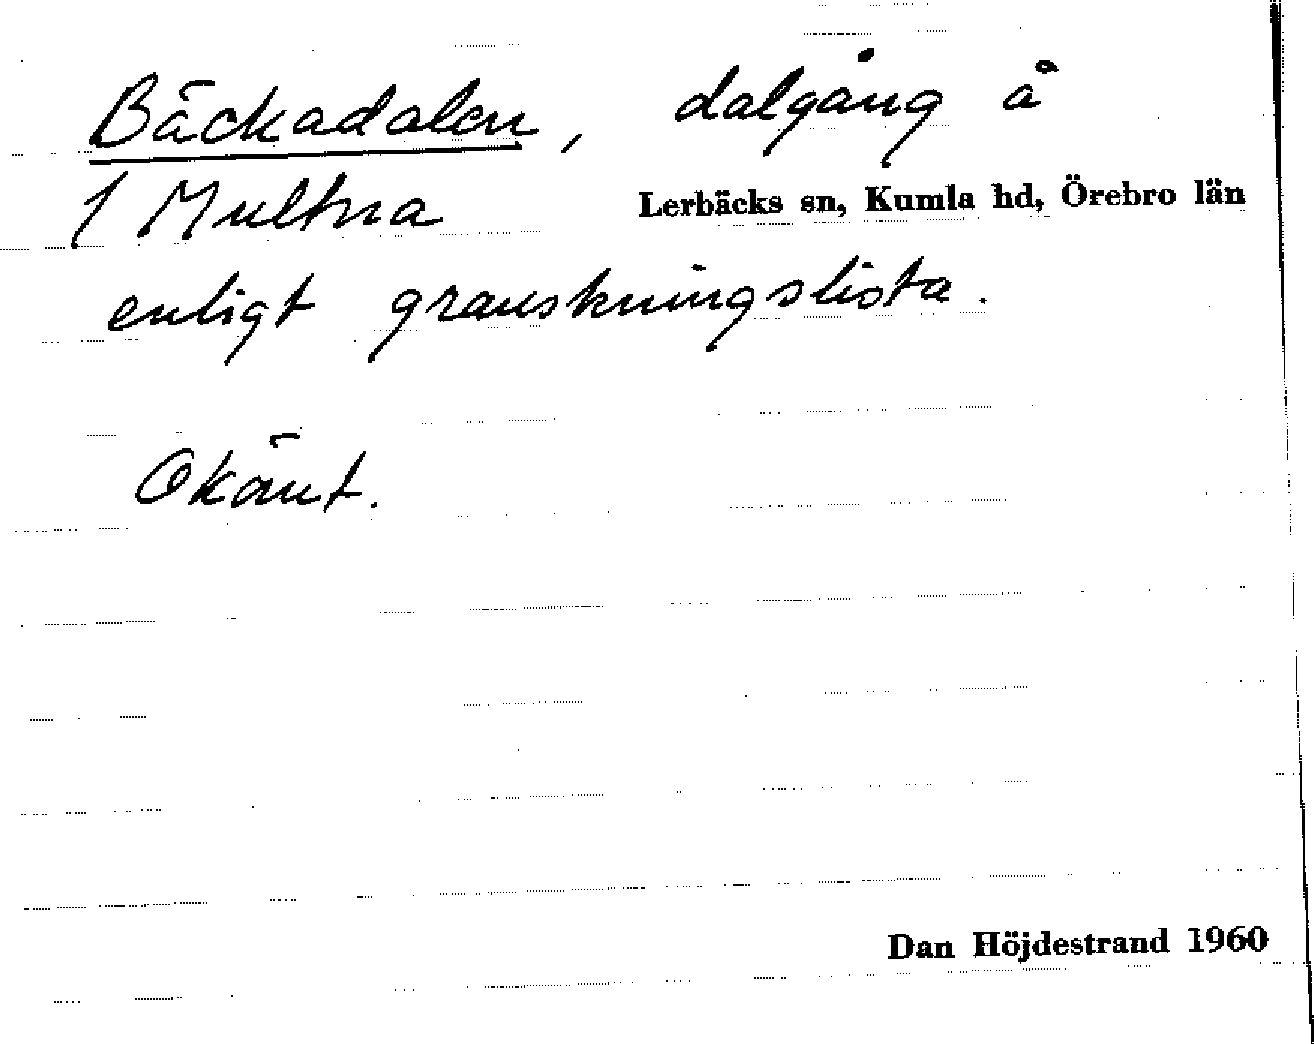 Bäckadalen, dalgång å
1 Multna
Lerbäcks sn, Kumla hd, Örebro län
enligt granskningslista.
Okänt.
Dan Höjdestrand 1960